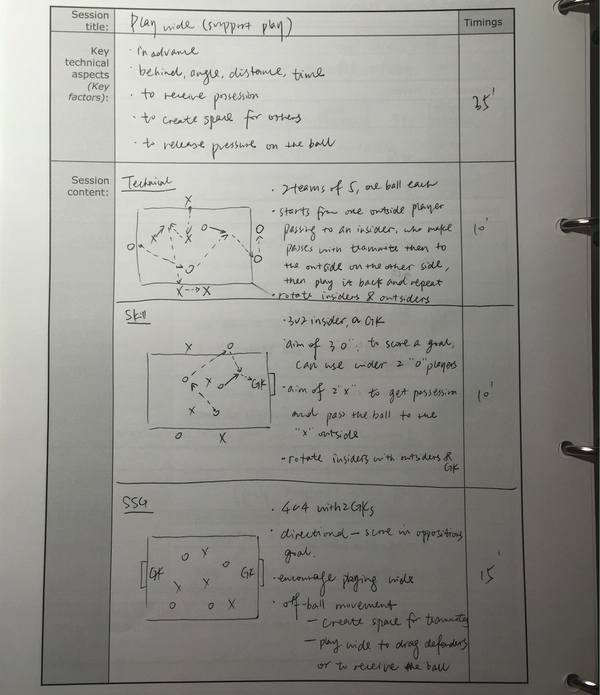 Session title:
Play wide (support play)
Timings
Key technical aspects (Key factors):
· in advance
· behind, angle, distance, time
· to receive possession
· to create space for others
· to release pressure on the ball
35'
Session content:
Technical
X
X
X
O
O
O
O
O
X
X
· 2 teams of 5, one ball each
· starts from one outside player
passing to an insider, who make
passes with teammate then to
the outside on the other side,
then play it back and repeat
· rotate insiders & outsiders
10'
Skill
X
O
O
X
O
GK
X
O
O
X
· 3v2 insider, a GK
· aim of 3 "O": to score a goal,
can use wider 2 "O" players
· aim of 2 "X" to get possession
and pass the ball to the
"X" outside
· rotate insiders with outsiders &
GK
10'
SSG
GK
O
X
O
GK
X
X
O
O
X
· 4v4 with 2 GKs
· directional – score in oppositions
goal.
· encourage playing wide
· off-ball movement
– create space for teammates
– play wide to drag defenders
or to receive the ball
15'